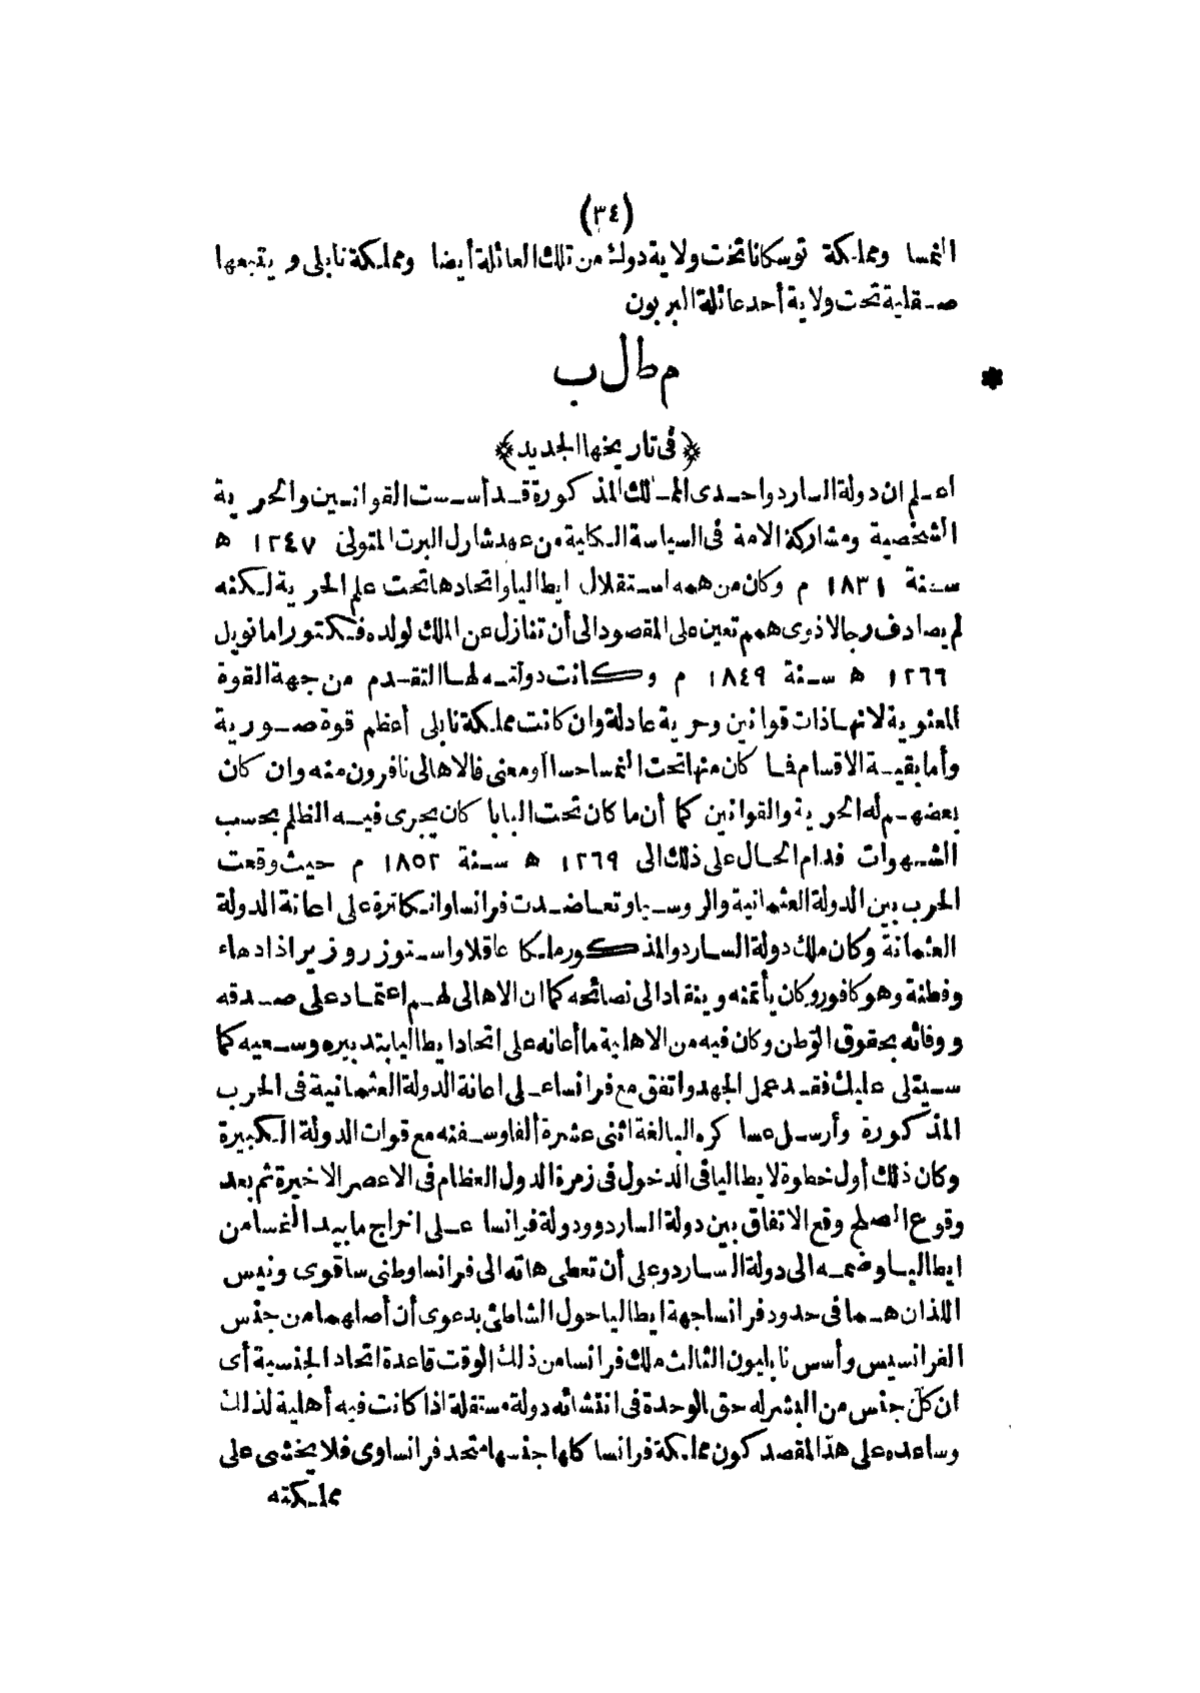 (٣٤)
النمسا ومملكة توسكانا تحت ولاية دوك من تلك العائلة أيضا ومملكة نابلى ويتبعها
صقلية تحت ولاية أحد عائلة البربون
مطالب
*
﴿فى تاريخها الجديد﴾
اعلم ان دولة الساردو احدى الممالك المذكورة قد أسست القوانين والحرية
الشخصية ومشاركة الامة فى السياسة الكلية من عهد شارل البرت المتولى ١٢٤٧ ه
سنة ١٨٣١ م وكان من همه استقلال ايطاليا واتحادها تحت علم الحرية لكنه
لم يصادف رجالا ذوى همم تعين على المقصود الى أن تنازل عن الملك لولده فكتور امانويل
١٢٦٦ ه سنة ١٨٤٩ م وكانت دولته لها التقدم من جهة القوة
المعنوية لانها ذات قوانين وحرية عادلة وان كانت مملكة نابلى أعظم قوة صورية
وأما بقية الاقسام فما كان منها تحت النمسا حسا أو معنى فالاهالى نافرون منه وان كان
بعضهم له الحرية والقوانين كما أن ما كان تحت البابا كان يجرى فيه الظلم بحسب
الشهوات فدام الحال على ذلك الى ١٢٦٩ ه سنة ١٨٥٢ م حيث وقعت
الحرب بين الدولة العثمانية والروسيا وتعاضدت فرانسا وانكلترة على اعانة الدولة
العثمانة وكان ملك دولة الساردو المذكور ملكا عاقلا واستوزر وزيرا ذا دهاء
وفطنة وهو كافور وكان يأتمنه وينقاد الى نصائحه كما ان الاهالى لهم اعتماد على صدقه
ووفائه بحقوق الوطن وكان فيه من الاهلية ما أعانه على اتحاد ايطاليا بتدبيره وسعيه كما
سيتلى عليك فقد عمل الجهد واتفق مع فرانسا على اعانة الدولة العثمانية فى الحرب
المذكورة وأرسل عساكره البالغة اثنى عشرة ألفا وسفنه مع قوات الدولة الكبيرة
وكان ذلك أول خطوة لايطاليا فى الدخول فى زمرة الدول العظام فى الاعصر الاخيرة ثم بعد
وقوع الصلح وقع الاتفاق بين دولة الساردو ودولة فرانسا على اخراج ما بيد النمسا من
ايطاليا وضمه الى دولة الساردو على أن تعطى هاته الى فرانسا وطنى ساقوى ونيس
اللذان هما فى حدود فرانسا جهة ايطاليا حول الشاطئ بدعوى أن أصلهما من جنس
الفرانسيس وأسس نابليون الثالث ملك فرانسا من ذلك الوقت قاعدة اتحاد الجنسية أى
ان كل جنس من البشر له حق الوحدة فى انتشائه دولة مستقلة اذا كانت فيه أهلية لذلك
وساعده على هذا المقصد كون مملكة فرانسا كلها جنسها متحد فرانساوى فلا يخشى على
مملكته